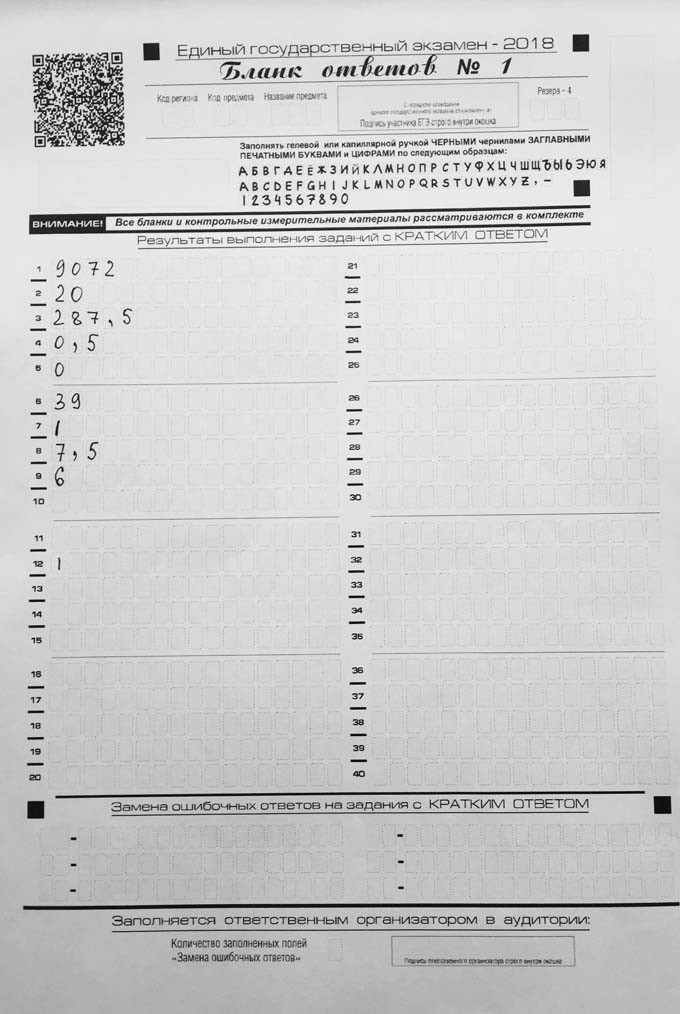 Единый государственный экзамен - 2018
Бланк ответов № 1
Код региона Код предмета Название предмета
Резерв - 4
Подпись участника ЕГЭ строго внутри окошка
Заполнять гелевой или капиллярной ручкой ЧЕРНЫМИ чернилами ЗАГЛАВНЫМИ
ПЕЧАТНЫМИ БУКВАМИ и ЦИФРАМИ по следующим образцам:
АБВГДЕЁЖЗИЙКЛМНОПРСТУФХЦЧШЩЪЫЬЭЮЯ
ABCDEFGHIJKLMNOPQRSTUVWXYZ,-
1234567890
ВНИМАНИЕ! Все бланки и контрольные измерительные материалы рассматриваются в комплекте
Результаты выполнения заданий с КРАТКИМ ОТВЕТОМ
1 9072
2 20
3 287,5
4 0,5
5 0
6 39
7 1
8 7,5
9 6
10
11
12 1
13
14
15
16
17
18
19
20
21
22
23
24
25
26
27
28
29
30
31
32
33
34
35
36
37
38
39
40
Замена ошибочных ответов на задания с КРАТКИМ ОТВЕТОМ
- -
- -
- -
Заполняется ответственным организатором в аудитории:
Количество заполненных полей
«Замена ошибочных ответов»
Подпись ответственного организатора строго внутри окошка